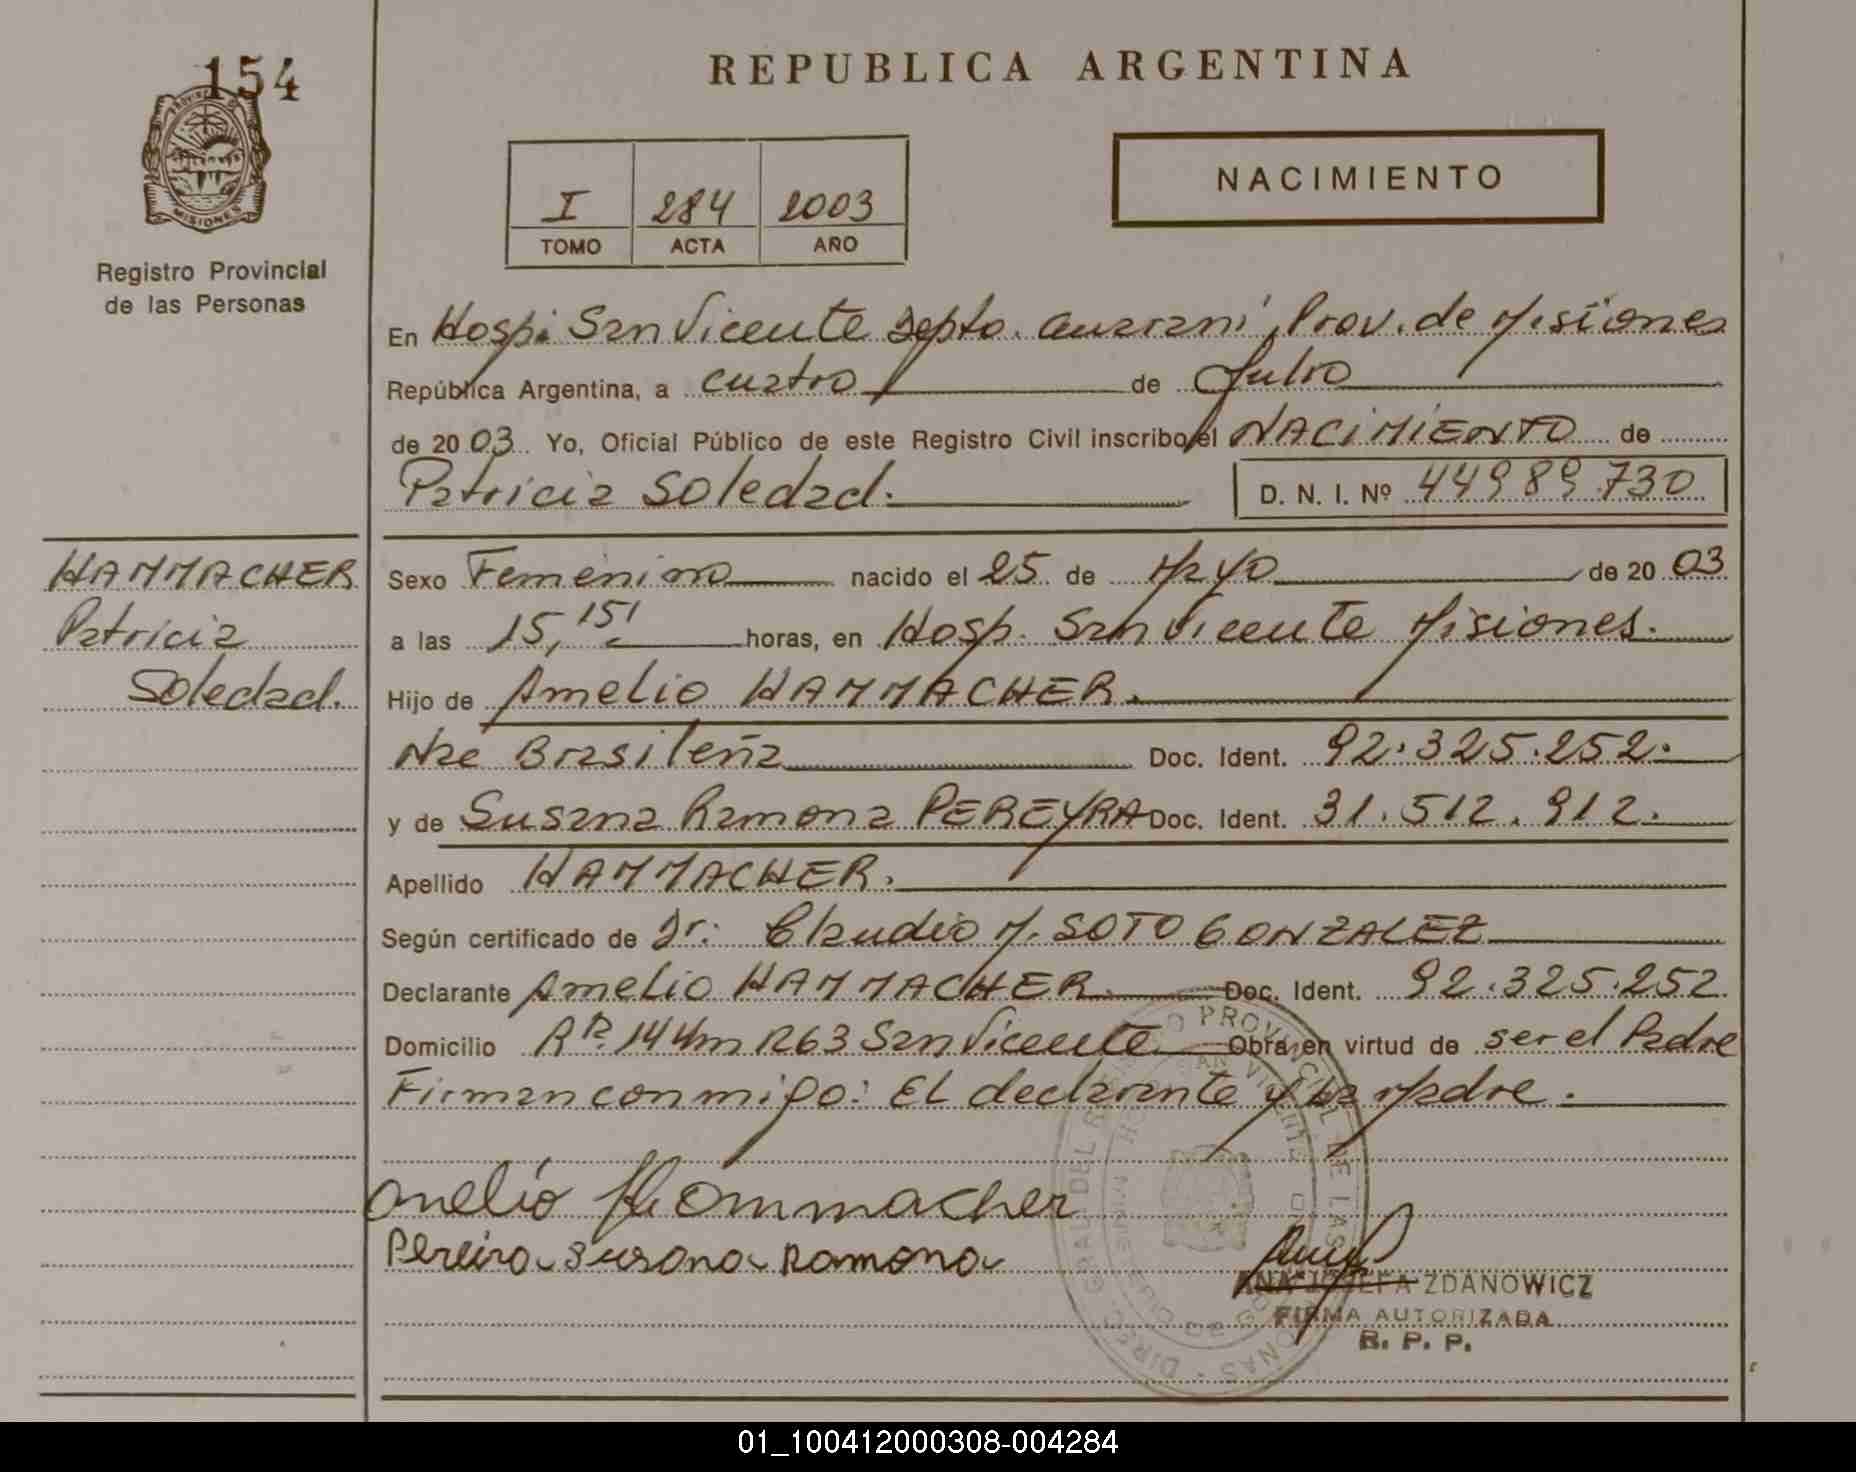 154
MISIONES
Registro Provincial
de las Personas
REPUBLICA ARGENTINA
I 284 2003
TOMO ACTA AÑO
NACIMIENTO
En Hosp. San Vicente Depto. Guaraní, Prov. de Misiones
República Argentina, a cuatro de Julio
de 2003. Yo, Oficial Público de este Registro Civil inscribo el NACIMIENTO de
Patricia Soledad. D. N. I. Nº 44989.730
HAMMACHER
Patricia
Soledad.
Sexo Femenino nacido el 25 de Mayo de 2003
a las 15,15' horas, en Hosp. San Vicente Misiones.
Hijo de Amelio HAMMACHER.
Nac Brasileña Doc. Ident. 92.325.252.
y de Susana Ramona PEREYRA Doc. Ident. 31.512.912.
Apellido HAMMACHER.
Según certificado de Dr. Claudio M. SOTO GONZALEZ
Declarante Amelio HAMMACHER Doc. Ident. 92.325.252
Domicilio Aº 144m R63 San Vicente Obra en virtud de ser el Padre
Firman conmigo: El declarante y la Madre.
Onelio Hommacher
Pereira Susana Ramona
ANA JOSEFA ZDANOWICZ
FIRMA AUTORIZADA
R. P. P.
01_100412000308-004284